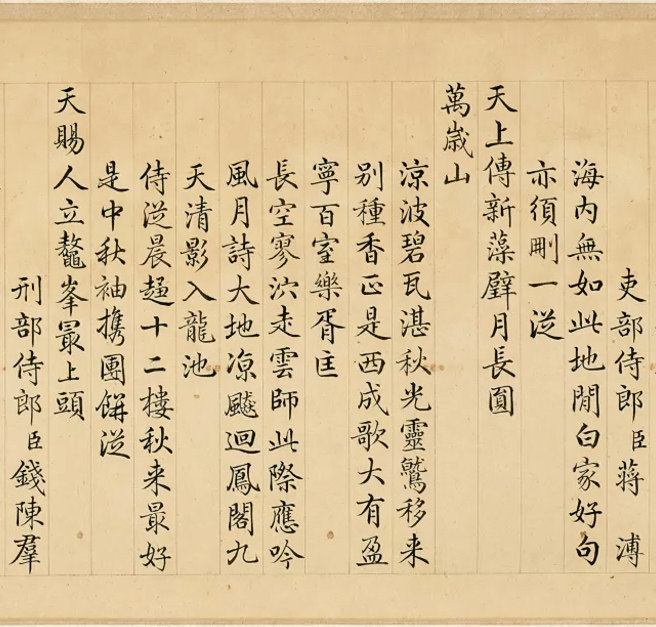 吏部侍郎臣蔣溥
海内無如此地閒白家好句
亦須刪一從
天上傳新藻璧月長圓
萬歲山
涼波碧瓦湛秋光靈鷲移来
别種香正是西成歌大有盈
寧百室樂胥匡
長空寥泬走雲師此際應吟
風月詩大地凉飇迴鳳閣九
天清影入龍池
侍從晨趨十二樓秋来最好
是中秋袖攜團餅從
天賜人立鼇峯最上頭
刑部侍郎臣錢陳羣